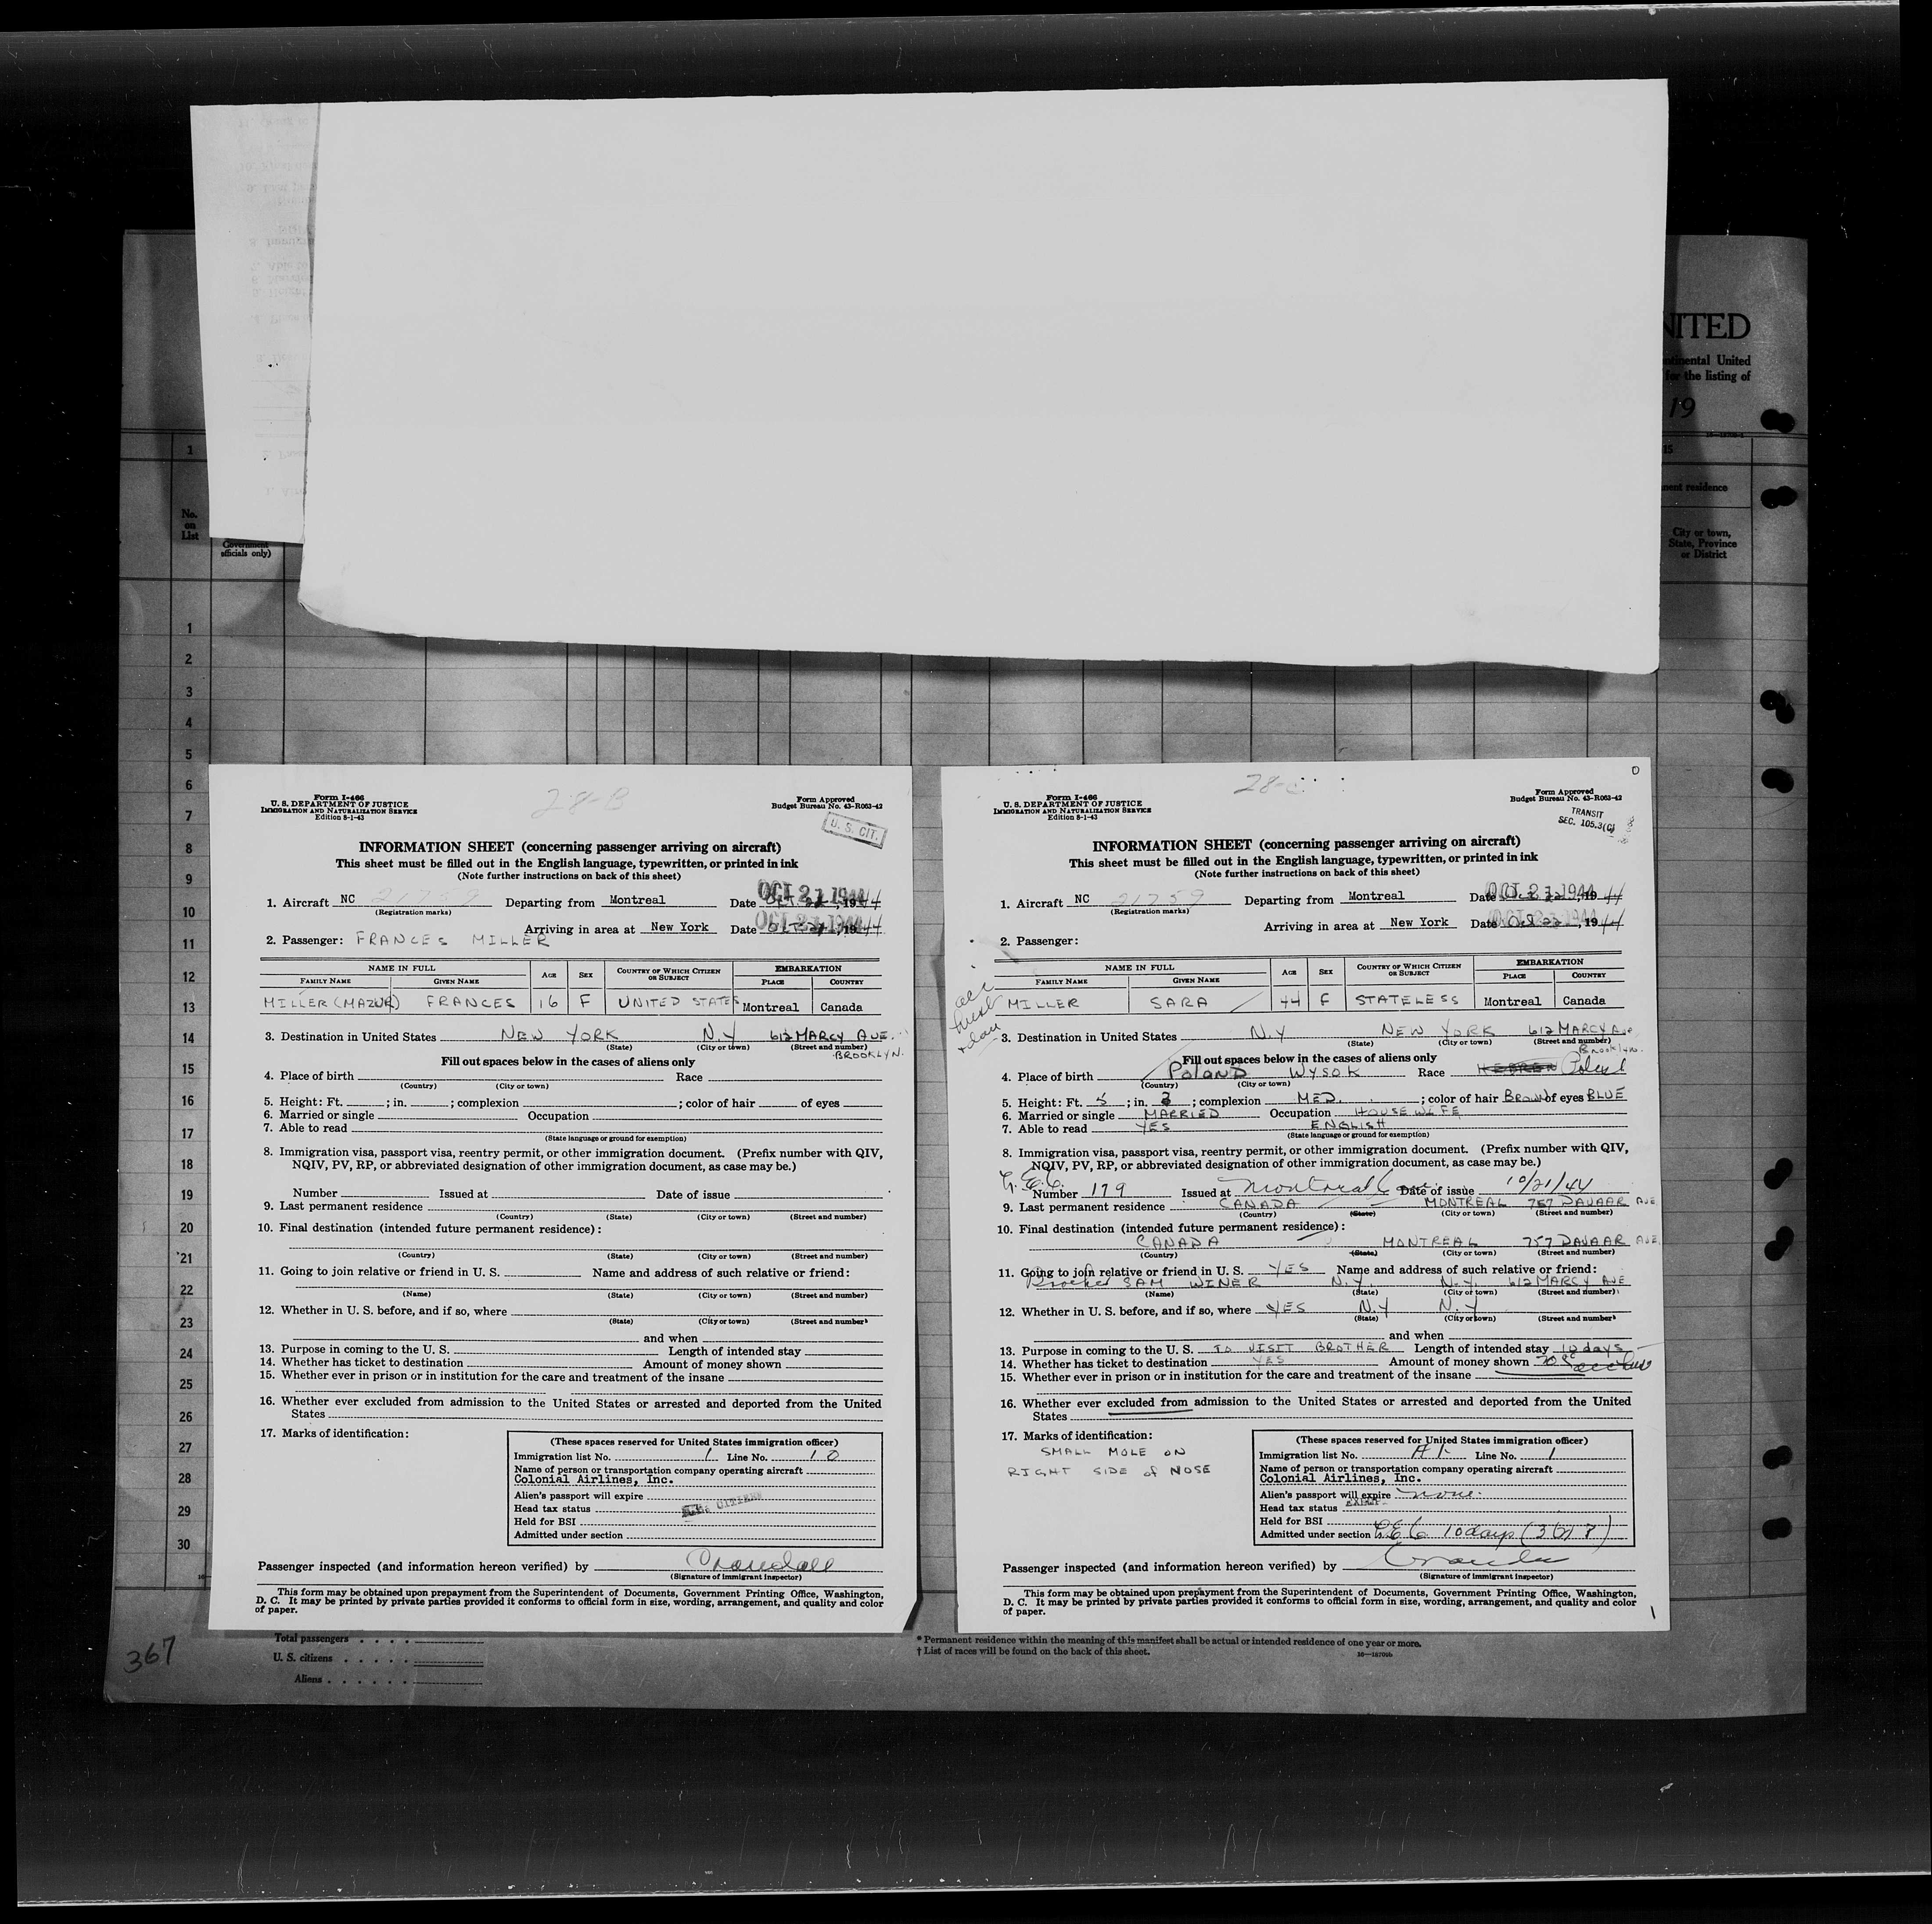 NITED
ntinental United
for the listing of
19
1
15
nent residence
No.
on
List
Government
officials only)
City or town,
State, Province
or District
1
2
3
4
5
6
7
8
9
10
11
12
13
14
15
16
17
18
19
20
21
22
23
24
25
26
27
28
29
30
28-B
Form I-466
U. S. DEPARTMENT OF JUSTICE
IMMIGRATION AND NATURALIZATION SERVICE
Edition 8-1-43
Form Approved
Budget Bureau No. 43-R063-42
U. S. CIT.
INFORMATION SHEET (concerning passenger arriving on aircraft)
This sheet must be filled out in the English language, typewritten, or printed in ink
(Note further instructions on back of this sheet)
OCT 21 1944
1. Aircraft NC 21759 Departing from Montreal Date 1944
(Registration marks)
OCT 21 1944
Arriving in area at New York Date 1944
2. Passenger: FRANCES MILLER
NAME IN FULL AGE SEX COUNTRY OF WHICH CITIZEN OR SUBJECT EMBARKATION
FAMILY NAME GIVEN NAME PLACE COUNTRY
MILLER (MAZUR) FRANCES 16 F UNITED STATES Montreal Canada
3. Destination in United States NEW YORK N.Y 612 MARCY AVE.
(State) (City or town) (Street and number)
BROOKLYN.
Fill out spaces below in the cases of aliens only
4. Place of birth Race
(Country) (City or town)
5. Height: Ft. ; in. ; complexion ; color of hair of eyes
6. Married or single Occupation
7. Able to read
(State language or ground for exemption)
8. Immigration visa, passport visa, reentry permit, or other immigration document. (Prefix number with QIV,
NQIV, PV, RP, or abbreviated designation of other immigration document, as case may be.)
Number Issued at Date of issue
9. Last permanent residence
(Country) (State) (City or town) (Street and number)
10. Final destination (intended future permanent residence):
(Country) (State) (City or town) (Street and number)
11. Going to join relative or friend in U. S. Name and address of such relative or friend:
(Name) (State) (City or town) (Street and number)
12. Whether in U. S. before, and if so, where
(State) (City or town) (Street and number)
and when
13. Purpose in coming to the U. S. Length of intended stay
14. Whether has ticket to destination Amount of money shown
15. Whether ever in prison or in institution for the care and treatment of the insane
16. Whether ever excluded from admission to the United States or arrested and deported from the United
States
17. Marks of identification:
(These spaces reserved for United States immigration officer)
Immigration list No. 1 Line No. 10
Name of person or transportation company operating aircraft
Colonial Airlines, Inc.
Alien's passport will expire
Head tax status CITIZEN
Held for BSI
Admitted under section
Passenger inspected (and information hereon verified) by Crandall
(Signature of Immigrant Inspector)
This form may be obtained upon prepayment from the Superintendent of Documents, Government Printing Office, Washington,
D. C. It may be printed by private parties provided it conforms to official form in size, wording, arrangement, and quality and color
of paper.
28-C
Form I-466
U. S. DEPARTMENT OF JUSTICE
IMMIGRATION AND NATURALIZATION SERVICE
Edition 8-1-43
Form Approved
Budget Bureau No. 43-R063-42
TRANSIT
SEC. 105.3(C)
INFORMATION SHEET (concerning passenger arriving on aircraft)
This sheet must be filled out in the English language, typewritten, or printed in ink
(Note further instructions on back of this sheet)
OCT 21 1944
1. Aircraft NC 21759 Departing from Montreal Date Oct 22, 1944
(Registration marks)
Arriving in area at New York Date Oct 22, 1944
2. Passenger:
NAME IN FULL AGE SEX COUNTRY OF WHICH CITIZEN OR SUBJECT EMBARKATION
FAMILY NAME GIVEN NAME PLACE COUNTRY
MILLER SARA 44 F STATELESS Montreal Canada
3. Destination in United States N.Y NEW YORK 612 MARCY Ave
(State) (City or town) (Street and number)
Brooklyn.
Fill out spaces below in the cases of aliens only
4. Place of birth POLAND WYSOK Race HEBREW Polish
(Country) (City or town)
5. Height: Ft. 5; in. 3; complexion MED. ; color of hair BROWN of eyes BLUE
6. Married or single MARRIED Occupation HOUSEWIFE
7. Able to read YES ENGLISH
(State language or ground for exemption)
8. Immigration visa, passport visa, reentry permit, or other immigration document. (Prefix number with QIV,
NQIV, PV, RP, or abbreviated designation of other immigration document, as case may be.)
Number 179 Issued at Montreal Can. Date of issue 10/21/44
9. Last permanent residence CANADA MONTREAL 757 DAVAAR AVE
(Country) (State) (City or town) (Street and number)
10. Final destination (intended future permanent residence):
CANADA MONTREAL 757 DAVAAR AVE.
(Country) (State) (City or town) (Street and number)
11. Going to join relative or friend in U. S. YES Name and address of such relative or friend:
Brother SAM WINER N.Y. N.Y. 612 MARCY AVE
(Name) (State) (City or town) (Street and number)
12. Whether in U. S. before, and if so, where YES N.Y N.Y
(State) (City or town) (Street and number)
and when
13. Purpose in coming to the U. S. TO VISIT BROTHER Length of intended stay 10 days
14. Whether has ticket to destination YES Amount of money shown
15. Whether ever in prison or in institution for the care and treatment of the insane
16. Whether ever excluded from admission to the United States or arrested and deported from the United
States
17. Marks of identification:
SMALL MOLE ON
RIGHT SIDE of NOSE
(These spaces reserved for United States immigration officer)
Immigration list No. A1 Line No. 1
Name of person or transportation company operating aircraft
Colonial Airlines, Inc.
Alien's passport will expire none.
Head tax status
Held for BSI
Admitted under section 10 days
Passenger inspected (and information hereon verified) by
(Signature of Immigrant Inspector)
This form may be obtained upon prepayment from the Superintendent of Documents, Government Printing Office, Washington,
D. C. It may be printed by private parties provided it conforms to official form in size, wording, arrangement, and quality and color
of paper.
367
Total passengers
U. S. citizens
Aliens
* Permanent residence within the meaning of this manifest shall be actual or intended residence of one year or more.
† List of races will be found on the back of this sheet.